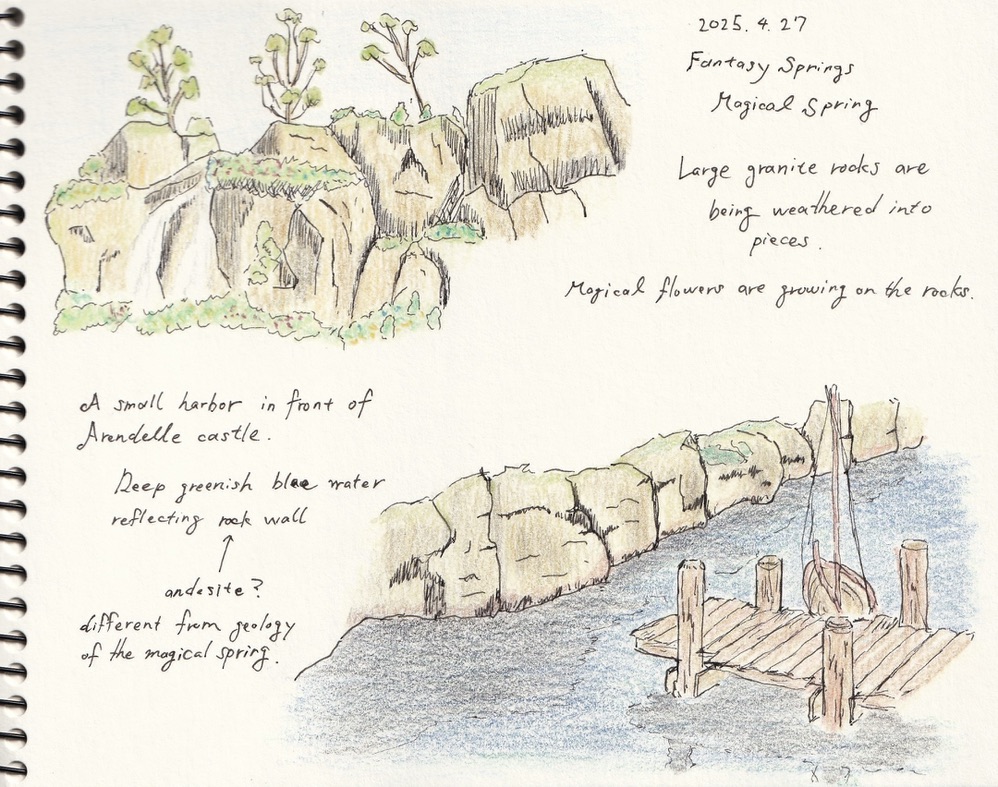 2025. 4. 27
Fantasy Springs
Magical Spring
Large granite rocks are
being weathered into
pieces.
Magical flowers are growing on the rocks.
A small harbor in front of
Arendelle castle.
Deep greenish blue water
reflecting rock wall
andesite?
different from geology
of the magical spring.